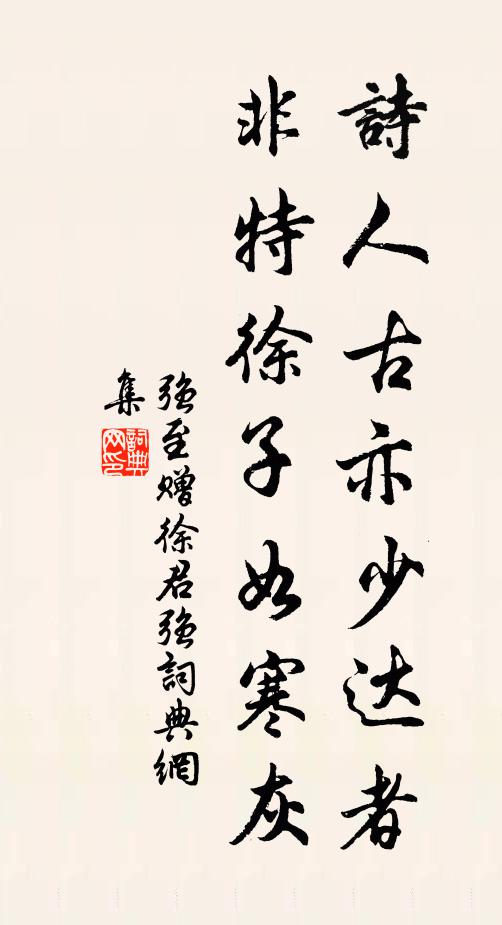 詩人古亦少达者
非特徐子如寒灰
强至赠徐君强詞典網
集
詞典
网印